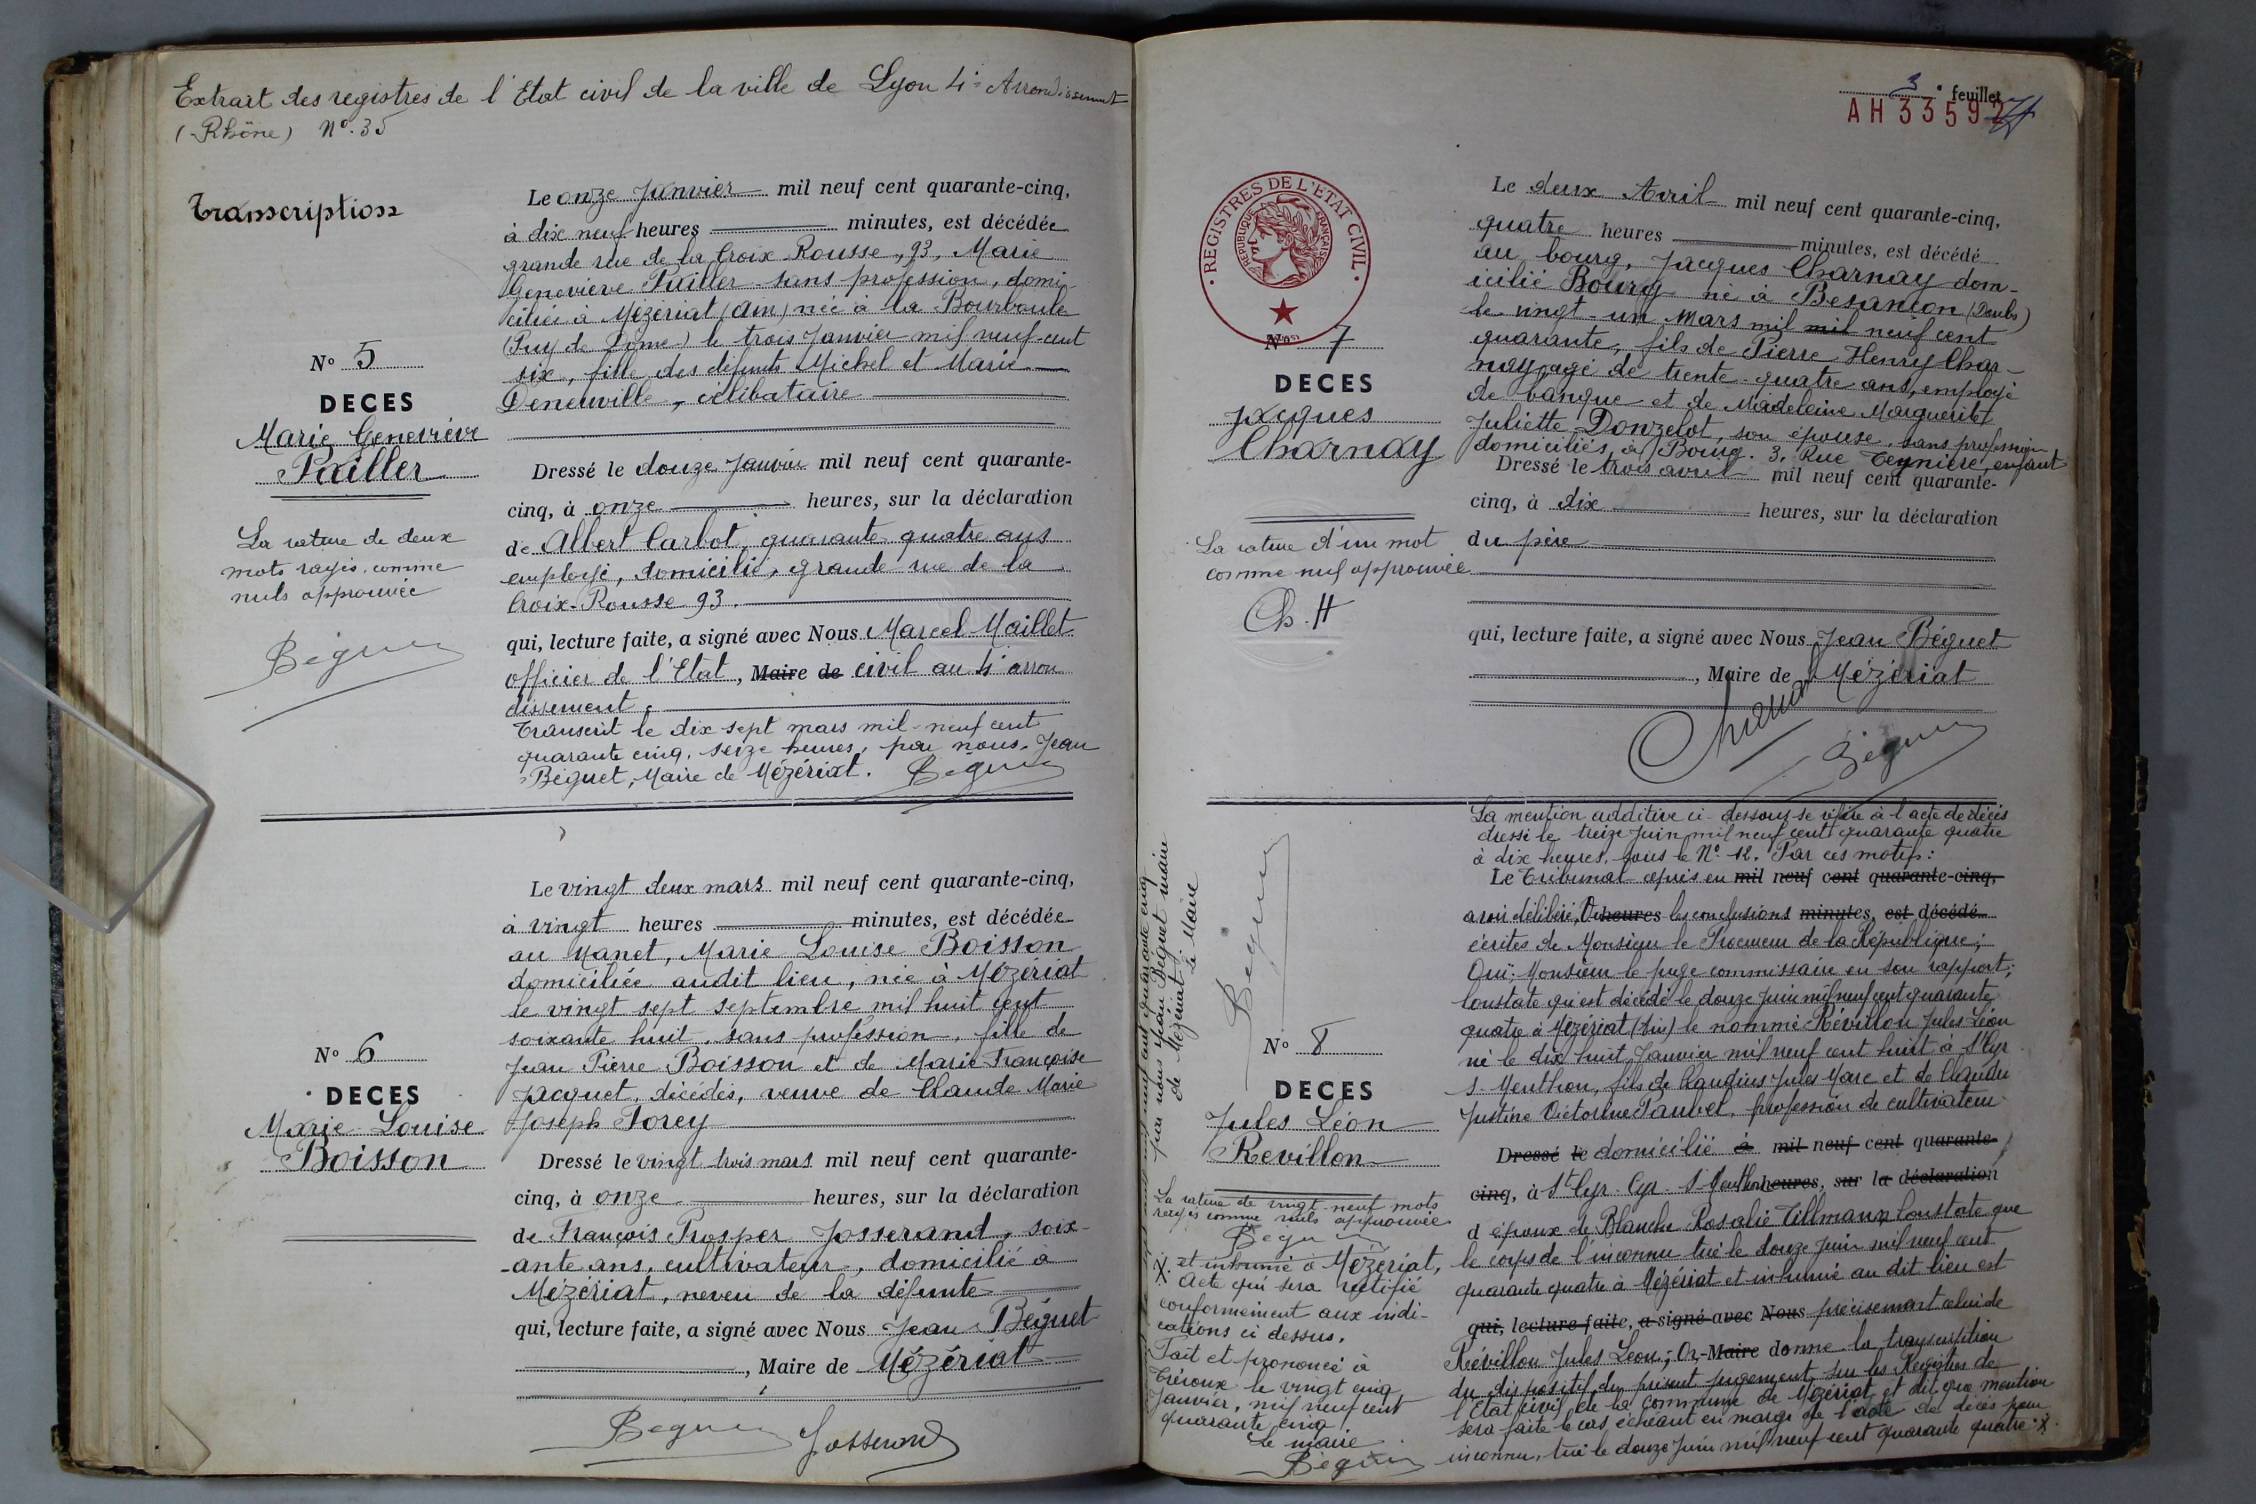 Extrait des registres de l'Etat civil de la ville de Lyon 4e Arrondissement
(Rhône) No. 35
Transcription
No 5
DECES
Marie Geneviève
Pailler
La rature de deux
mots rayés comme
nuls approuvée
Béguet
Le onze Janvier mil neuf cent quarante-cinq,
à dix neuf heures minutes, est décédée
grande rue de la Croix Rousse, 93, Marie
Geneviève Pailler sans profession, domi-
ciliée à Mézériat (Ain) née à la Bourboule
(Puy de Dome) le trois Janvier mil neuf-cent
six, fille des défunts Michel et Marie
Deneuville, célibataire
Dressé le douze Janvier mil neuf cent quarante-
cinq, à onze heures, sur la déclaration
de Albert Carbot, quarante quatre ans
employé, domicilié, grande rue de la
Croix-Rousse 93.
qui, lecture faite, a signé avec Nous Marcel Maillet
officier de l'Etat, Maire de civil au 4e arron
dissement.
Transcrit le dix sept mars mil-neuf cent
quarante cinq, seize heures, par nous, Jean
Béguet, Maire de Mézériat. Béguet
No 6
DECES
Marie-Louise
Boisson
Le vingt deux mars mil neuf cent quarante-cinq,
à vingt heures minutes, est décédée
au Manet, Marie Louise Boisson
domiciliée audit lieu, née à Mézériat
le vingt sept septembre mil huit cent
soixante huit, sans profession, fille de
Jean Pierre Boisson et de Marie Françoise
Jacquet, décédés, veuve de Claude Marie
Joseph Forey
Dressé le vingt trois mars mil neuf cent quarante-
cinq, à onze heures, sur la déclaration
de François Prosper Josserand, soix-
-ante ans, cultivateur, domicilié à
Mézériat, neveu de la défunte
qui, lecture faite, a signé avec Nous Jean Béguet
, Maire de Mézériat
Béguet Josserand
3e feuillet
AH 33592
REGISTRES DE L'ETAT CIVIL
REPUBLIQUE FRANÇAISE
No 7
DECES
Jacques
Charnay
La rature d'un mot
comme nul approuvée
Ch. H
Le deux Avril mil neuf cent quarante-cinq,
quatre heures minutes, est décédé
au bourg, Jacques Charnay dom-
icilié Bourg né à Besançon (Doubs)
le vingt-un mars mil mil neuf cent
quarante, fils de Pierre Henry Char-
nay, agé de trente-quatre ans, employé
de banque et de Madeleine Marguerite
Juliette Donzelot, son épouse, sans profession
domiciliés à Bourg. 3, Rue Teynière, enfant
Dressé le trois avril mil neuf cent quarante-
cinq, à dix heures, sur la déclaration
du père
qui, lecture faite, a signé avec Nous Jean Béguet
, Maire de Mézériat
Charnay
Béguet
par nous Jean Béguet maire
de Mézériat. Le Maire
Béguet
No 8
DECES
Jules Léon
Revillon
La rature de vingt-neuf mots
rayés comme nuls approuvée
Béguet
X et inhumé à Mézériat,
acte qui sera rectifié
conformément aux indi-
cations ci dessus.
Fait et prononcé à
Trévoux le vingt cinq
Janvier, mil neuf cent
quarante cinq
Le maire
Béguet
La mention additive ci-dessous se réfère à l'acte de décès
dressé le treize Juin mil neuf cent quarante quatre
à dix heures, sous le No. 12. Par ces motifs:
Le Tribunal après en mil neuf cent quarante-cinq,
avoir délibéré, Vu heures les conclusions minutes, est décédé
écrites de Monsieur le Procureur de la République;
Ouï Monsieur le juge commissaire en son rapport;
Constate qu'est décédé le douze Juin mil neuf cent quarante
quatre à Mézériat (Ain) le nommé Révillon Jules Léon
né le dix huit Janvier mil neuf cent huit à St Cyr
s. Menthon, fils de Claudius Jules Marc et de Claudine
Justine Victorine Paubel, profession de cultivateur
Dressé le domicilié à mil neuf cent quarante-
cinq, à St Cyr-Cyr-S-Menthon heures, sur la déclaration
d époux de Blanche Rosalie Tillmann Constate que
le corps de l'inconnu tué le douze Juin mil neuf cent
quarante quatre à Mézériat et inhumé au dit lieu est
qui, lecture faite, a signé avec Nous précisemment celui de
Révillon Jules Léon; Or- Maire donne la transcription
du dispositif du présent jugement sur les Registres de
l'Etat civil de la commune de Mézériat et dit que mention
sera faite le cas échéant en marge de l'acte de décès pour
inconnu, tué le douze Juin mil neuf cent quarante quatre X